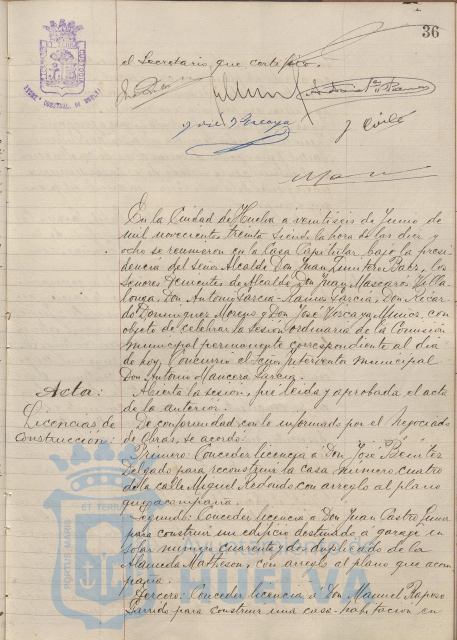 36
el Secretario, que certifico.
En la Ciudad de Huelva a veintiseis de Junio de
mil novecientos treinta siendo la hora de las diez y
ocho se reunieron en la Casa Capitular bajo la presi-
dencia del señor Alcalde Don Juan Quintero Báez, los
señores Tenientes de Alcalde Don Juan Mascarós Villa-
longa, Don Antonio Garcia-Ramos Garcia, Don Ricar-
do Dominguez Moreno y Don José Vizcaya Muñoz, con
objeto de celebrar la sesión ordinaria de la Comisión
municipal permanente correspondiente al dia
de hoy. Concurrio el Interventor municipal
Don Antonio Mancera
Acta:
Abierta la sesion, fué leida y aprobada el acta
de la anterior.
Licencias de
construcción:
De conformidad con lo informado por el Negociado
de Obras, se acordó:
Primero: Conceder licencia a Don José Benítez
Delgado para reconstruir la casa número cuatro
de la calle Miguel Redondo con arreglo al plano
que acompaña.
Segundo: Conceder licencia a Don Juan Castro
para construir un edificio destinado a garage en
solar número cuarenta y dos duplicado de la
Alameda Matheson, con arreglo al plano que acom-
paña.
Tercero: Conceder licencia a Don Manuel Raposo
Garrido para construir una casa-habitacion en
PORTUS MARIS
ET TERRAE
HUELVA